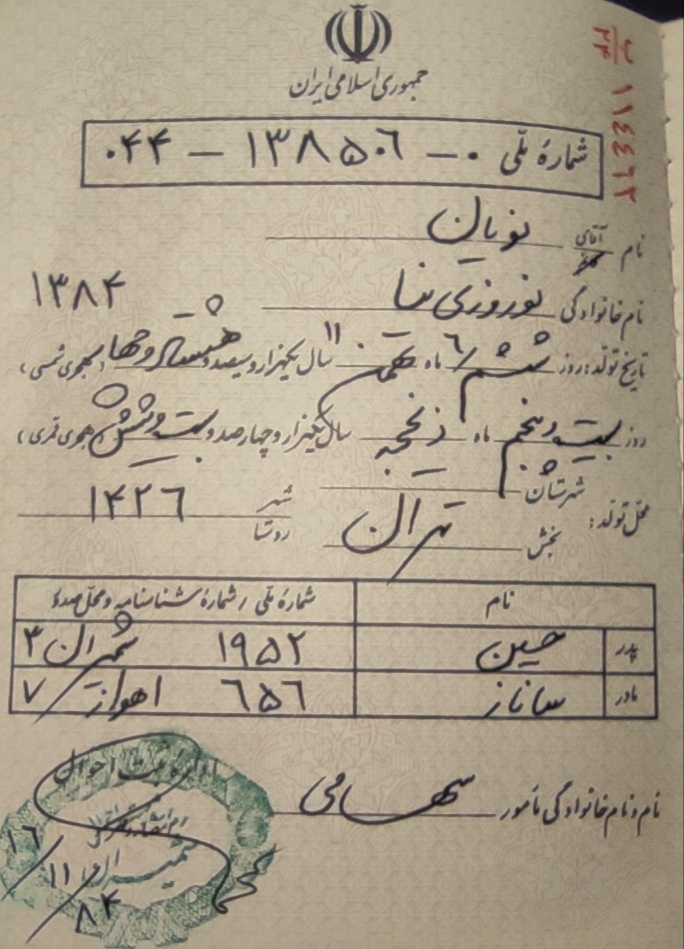 جمهوری اسلامی ایران
۶/۲۴ ۱۱۴۴۶۲
شمارهٔ ملّی ۰ — ۱۳۸۵۰۶ — ۰۴۴
نام آقای نویان
نام خانوادگی نوروزی نیا ۱۳۸۴
تاریخ تولد: روز ششم/۶ ماه بهمن ۱۱ سال یکهزار و سیصد و هشتاد و چهار (هجری شمسی)
روز بیست و پنجم ماه ذیحجه سال یکهزار و چهارصد و بیست و شش (هجری قمری)
محل تولد: شهرستان
بخش تهران شهر روستا ۱۴۲۶
نام شمارهٔ ملی / شمارهٔ شناسنامه و محل صدور
پدر حسین ۱۹۵۲ شمیران ۳
مادر ساناز ۶۵۶ اهواز ۷
نام و نام خانوادگی مأمور سهامی
اداره ثبت احوال
شمیران
۱۶/۱۱/۸۴